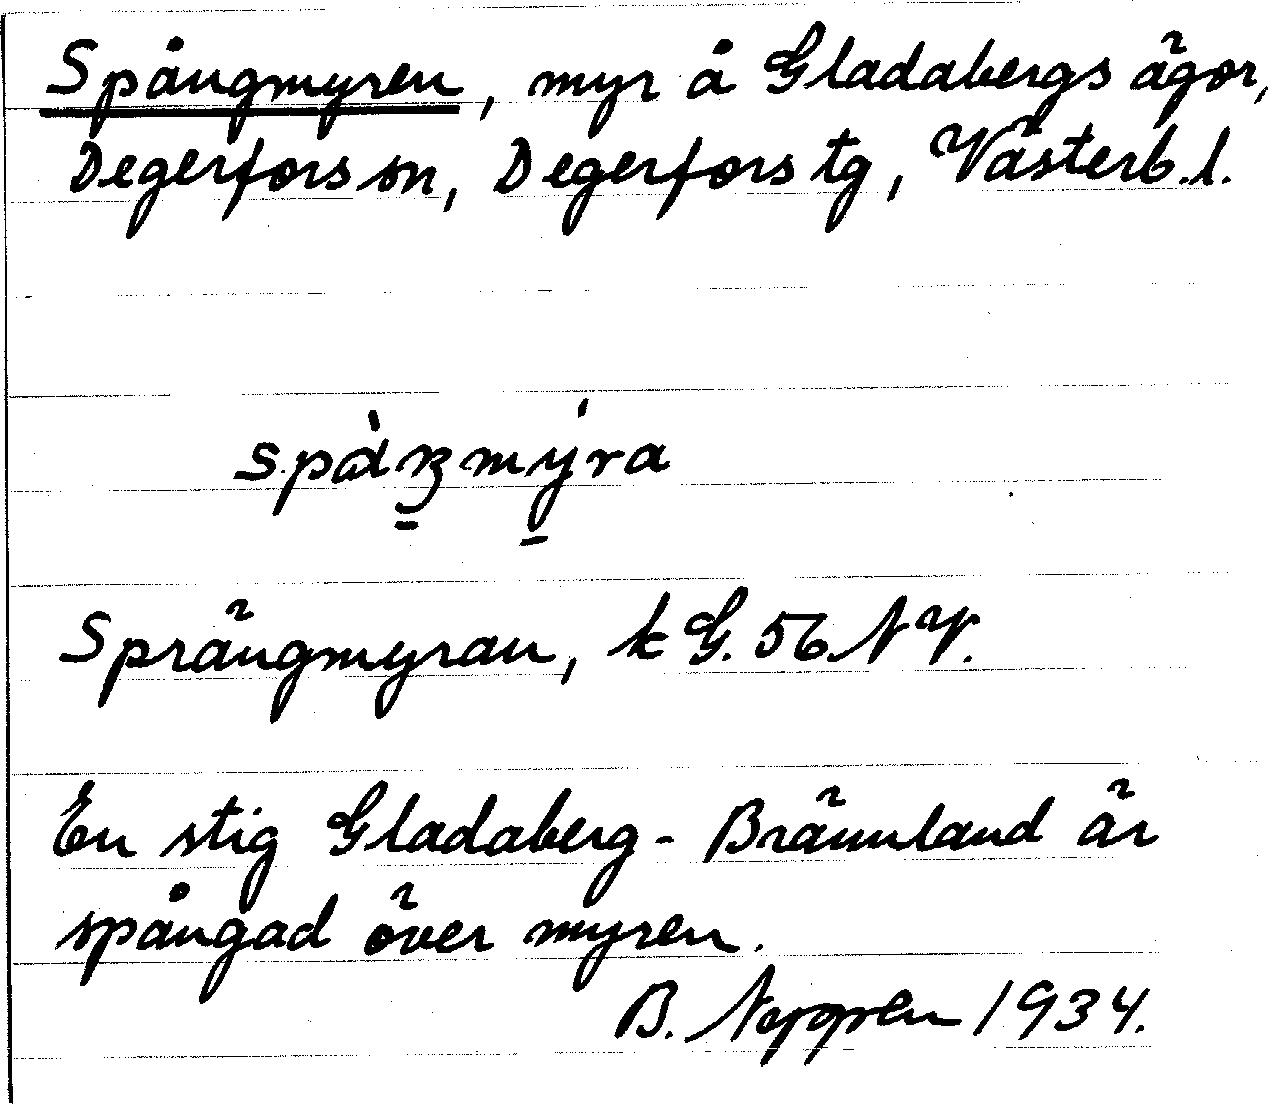 Spångmyren, myr å Gladabergs ägor,
Degerfors sn, Degerfors tg, Västerb.l.
Sprängmyran, k G. 56 NV.
En stig Gladaberg - Brännland är
spångad över myren.
B. 1934.